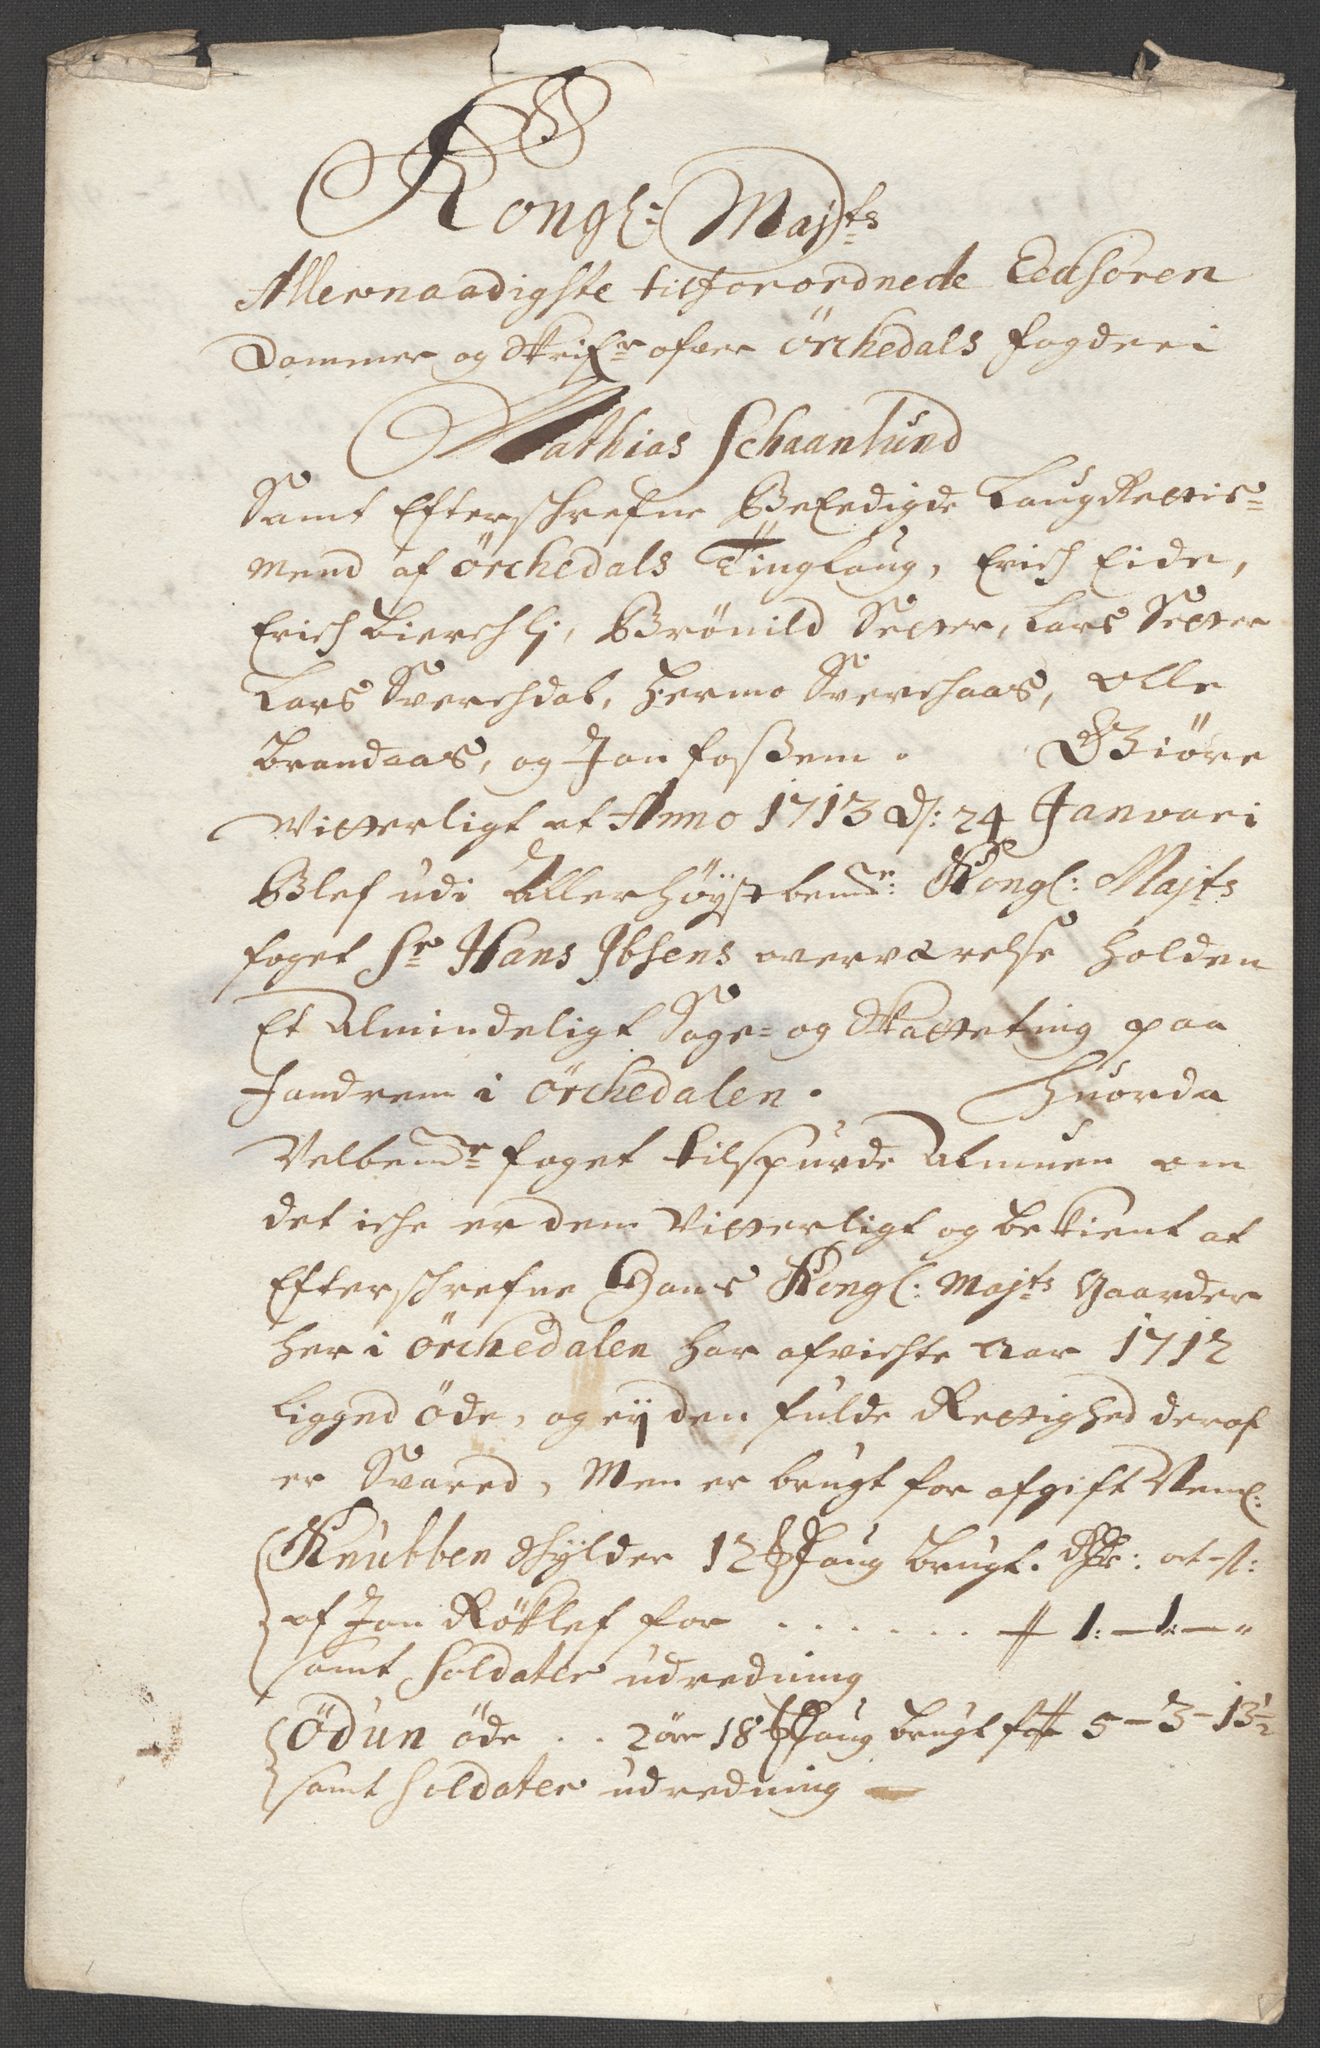 Kongl: Majts
Allernaadigste tilforordnede Eedsoren
Dommer og Skrifr ofver Örchedals fogderi
Mathias Schaanlund
Samt Efterschrefne BeEedigde LaugRettis=
mend af Örchedals Tinglaug, Erich Eide,
Erich Bierchlj, Brönild Setter, Lars Setter
Lars Sverchdal, Hermo Sverchaas, Olle
Brandaas, og Jon foßem. Giöre
Vitterligt at Anno 1713 d: 24 Januari
Blef udi Allerhöystbemte: Kongl: Majts
foget Sr Hans Ibsens overværelse holden
Et Almindeligt Sage= og Skatteting paa
i Örchedalen. Hvorda
Velbemte foget tilspurde Almuen om
det iche er dem Vitterligt og bekient at
Efterschrefne Hans Kongl: Majts Gaarder
her i Örchedalen har afvichte Aar 1712
ligged öde, og eij den fulde Rettighed deraf
er Svared, Men er brugt for afgift Neml:
Knubben Schylder 12 Laug brugt.
af Jon for . . . . . . 1: — 1: —
samt Soldater udredning
Ödun öde . . 2 ör 18 Laug brugt for 5 — 3 — 13½
samt Soldater udredning —